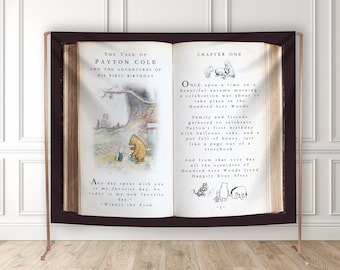 The Tale of
Payton Cole
and the adventures of
his first birthday
"Any day spent with you
is my favorite day. So
today is my new favorite
day."
-Winnie the Pooh
Chapter One
Once upon a time on a
beautiful autumn morning
a celebration was about to
take place in the
Hundred Acre Woods
Family and friends
gathered to celebrate
Payton's first birthday
with balloons, cake, and a
pot full of honey, just
like a page out of a
storybook.
And from that very day
all the creatures of
Hundred Acre Woods
lived
Happily Ever After